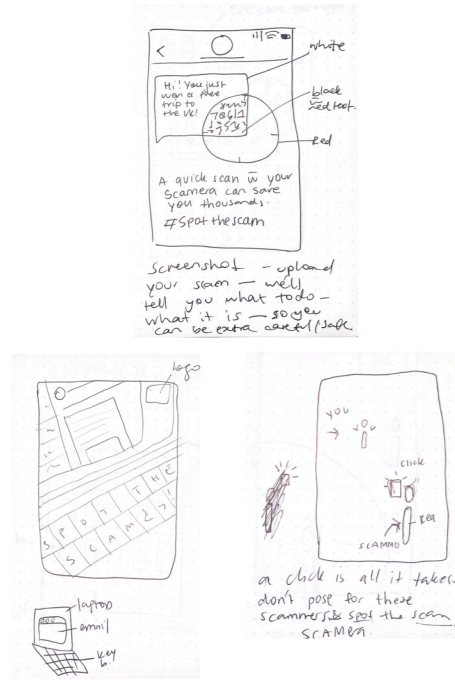 Hi! You just
won a free
trip to
the UK!
white
black
red text.
Red
A quick scan w your
Scamera can save
you thousands.
#Spot the scam
Screenshot - upload
your scam - we'll
tell you what to do -
what it is - so you
can be extra careful/safe
logo
SPOT THE
SCAM
laptop
email
key
YOU
click
Red
SCAMMO
a click is all it takes.
don't pose for these
scammers & spot the scam
SCAMERA.